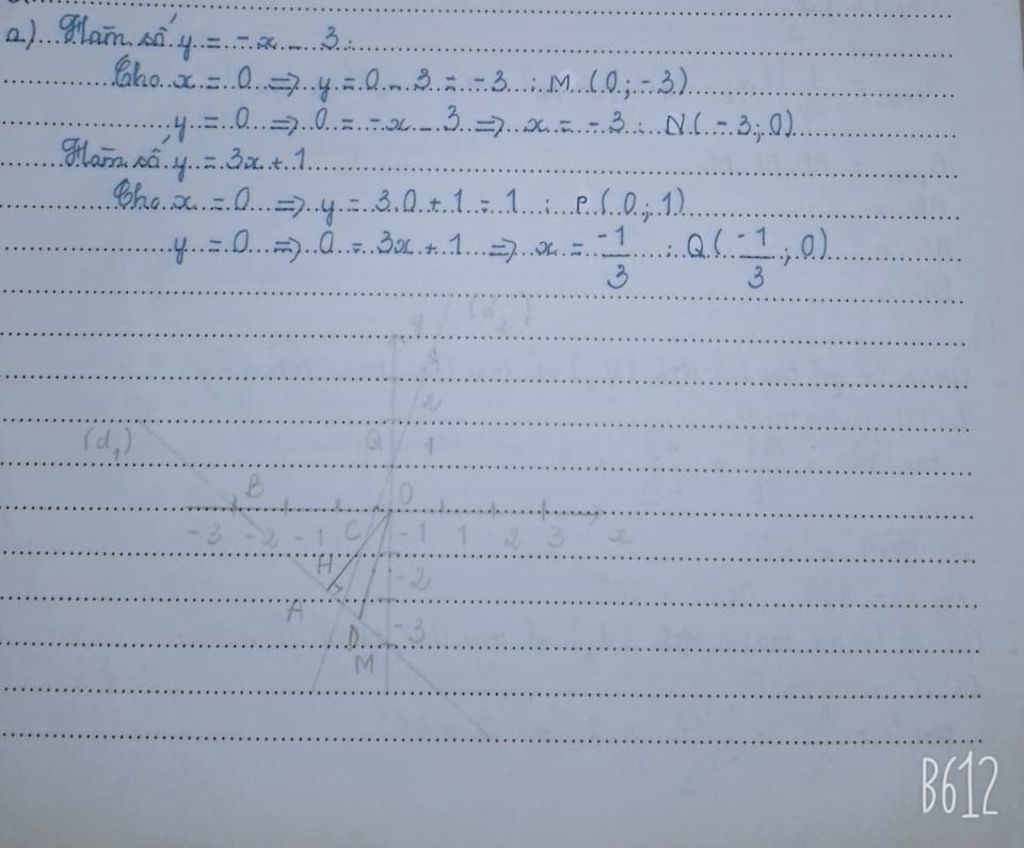 a) Hàm số y = -x - 3 :
Cho x = 0 => y = 0 - 3 = -3 : M (0; -3)
y = 0 => 0 = -x - 3 => x = -3 : N (-3; 0)
Hàm số y = 3x + 1
Cho x = 0 => y = 3.0 + 1 = 1 : P (0; 1)
y = 0 => 0 = 3x + 1 => x = -1/3 : Q (-1/3; 0)
y
3
2
(d₁) Q 1
B O
-3 -2 -1 C -1 1 2 3 x
H -2
A
D -3
M
B612